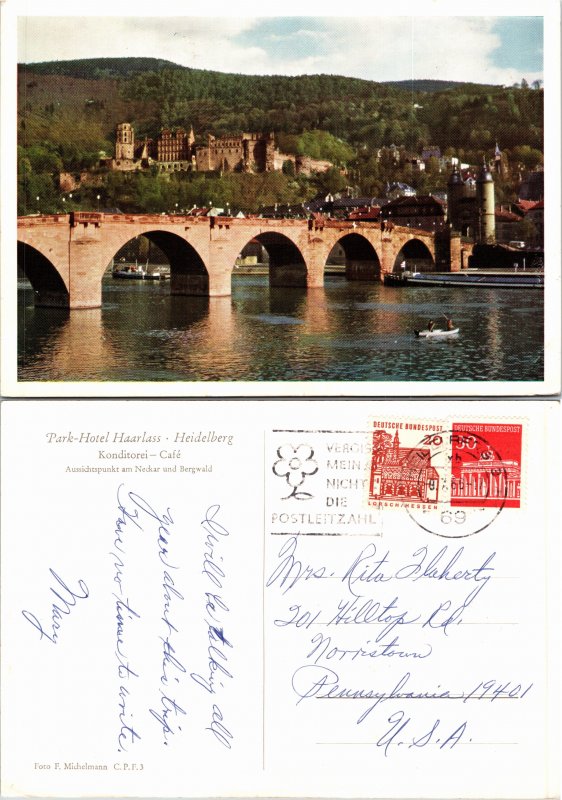 Park-Hotel Haarlass · Heidelberg
Konditorei – Café
Aussichtspunkt am Neckar und Bergwald
I will be talking all
year about this trip.
Have no time to write.
Mary
Foto F. Michelmann C. P. F. 3
VERGISS
MEIN
NICHT
DIE
POSTLEITZAHL
DEUTSCHE BUNDESPOST
20
LORSCH/HESSEN
DEUTSCHE BUNDESPOST
30
69
Mrs. Rita Flaherty
201 Hilltop Rd.
Norristown
Pennsylvania 19401
U.S.A.